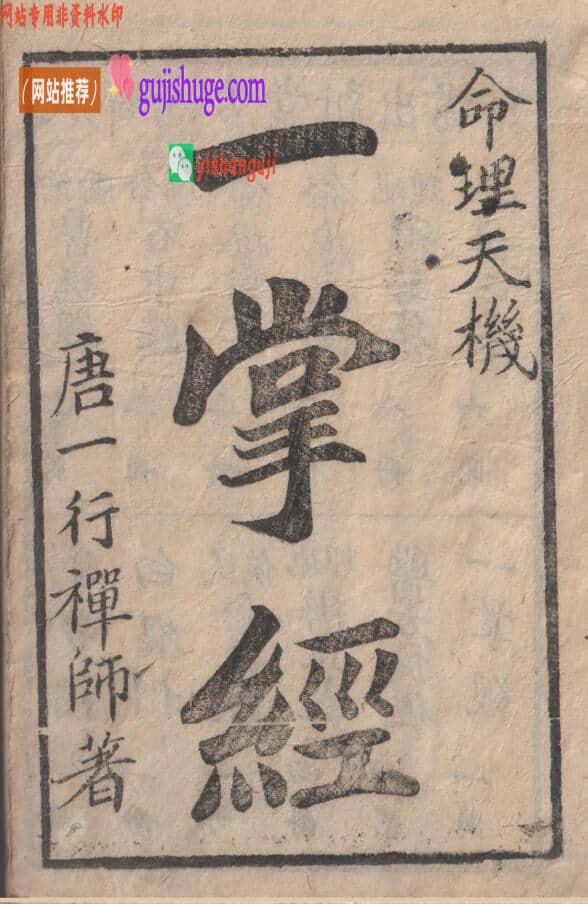 网站专用非资料水印
（网站推荐）
gujishuge.com
yishanguji
命理天機
一掌經
唐一行禪師著